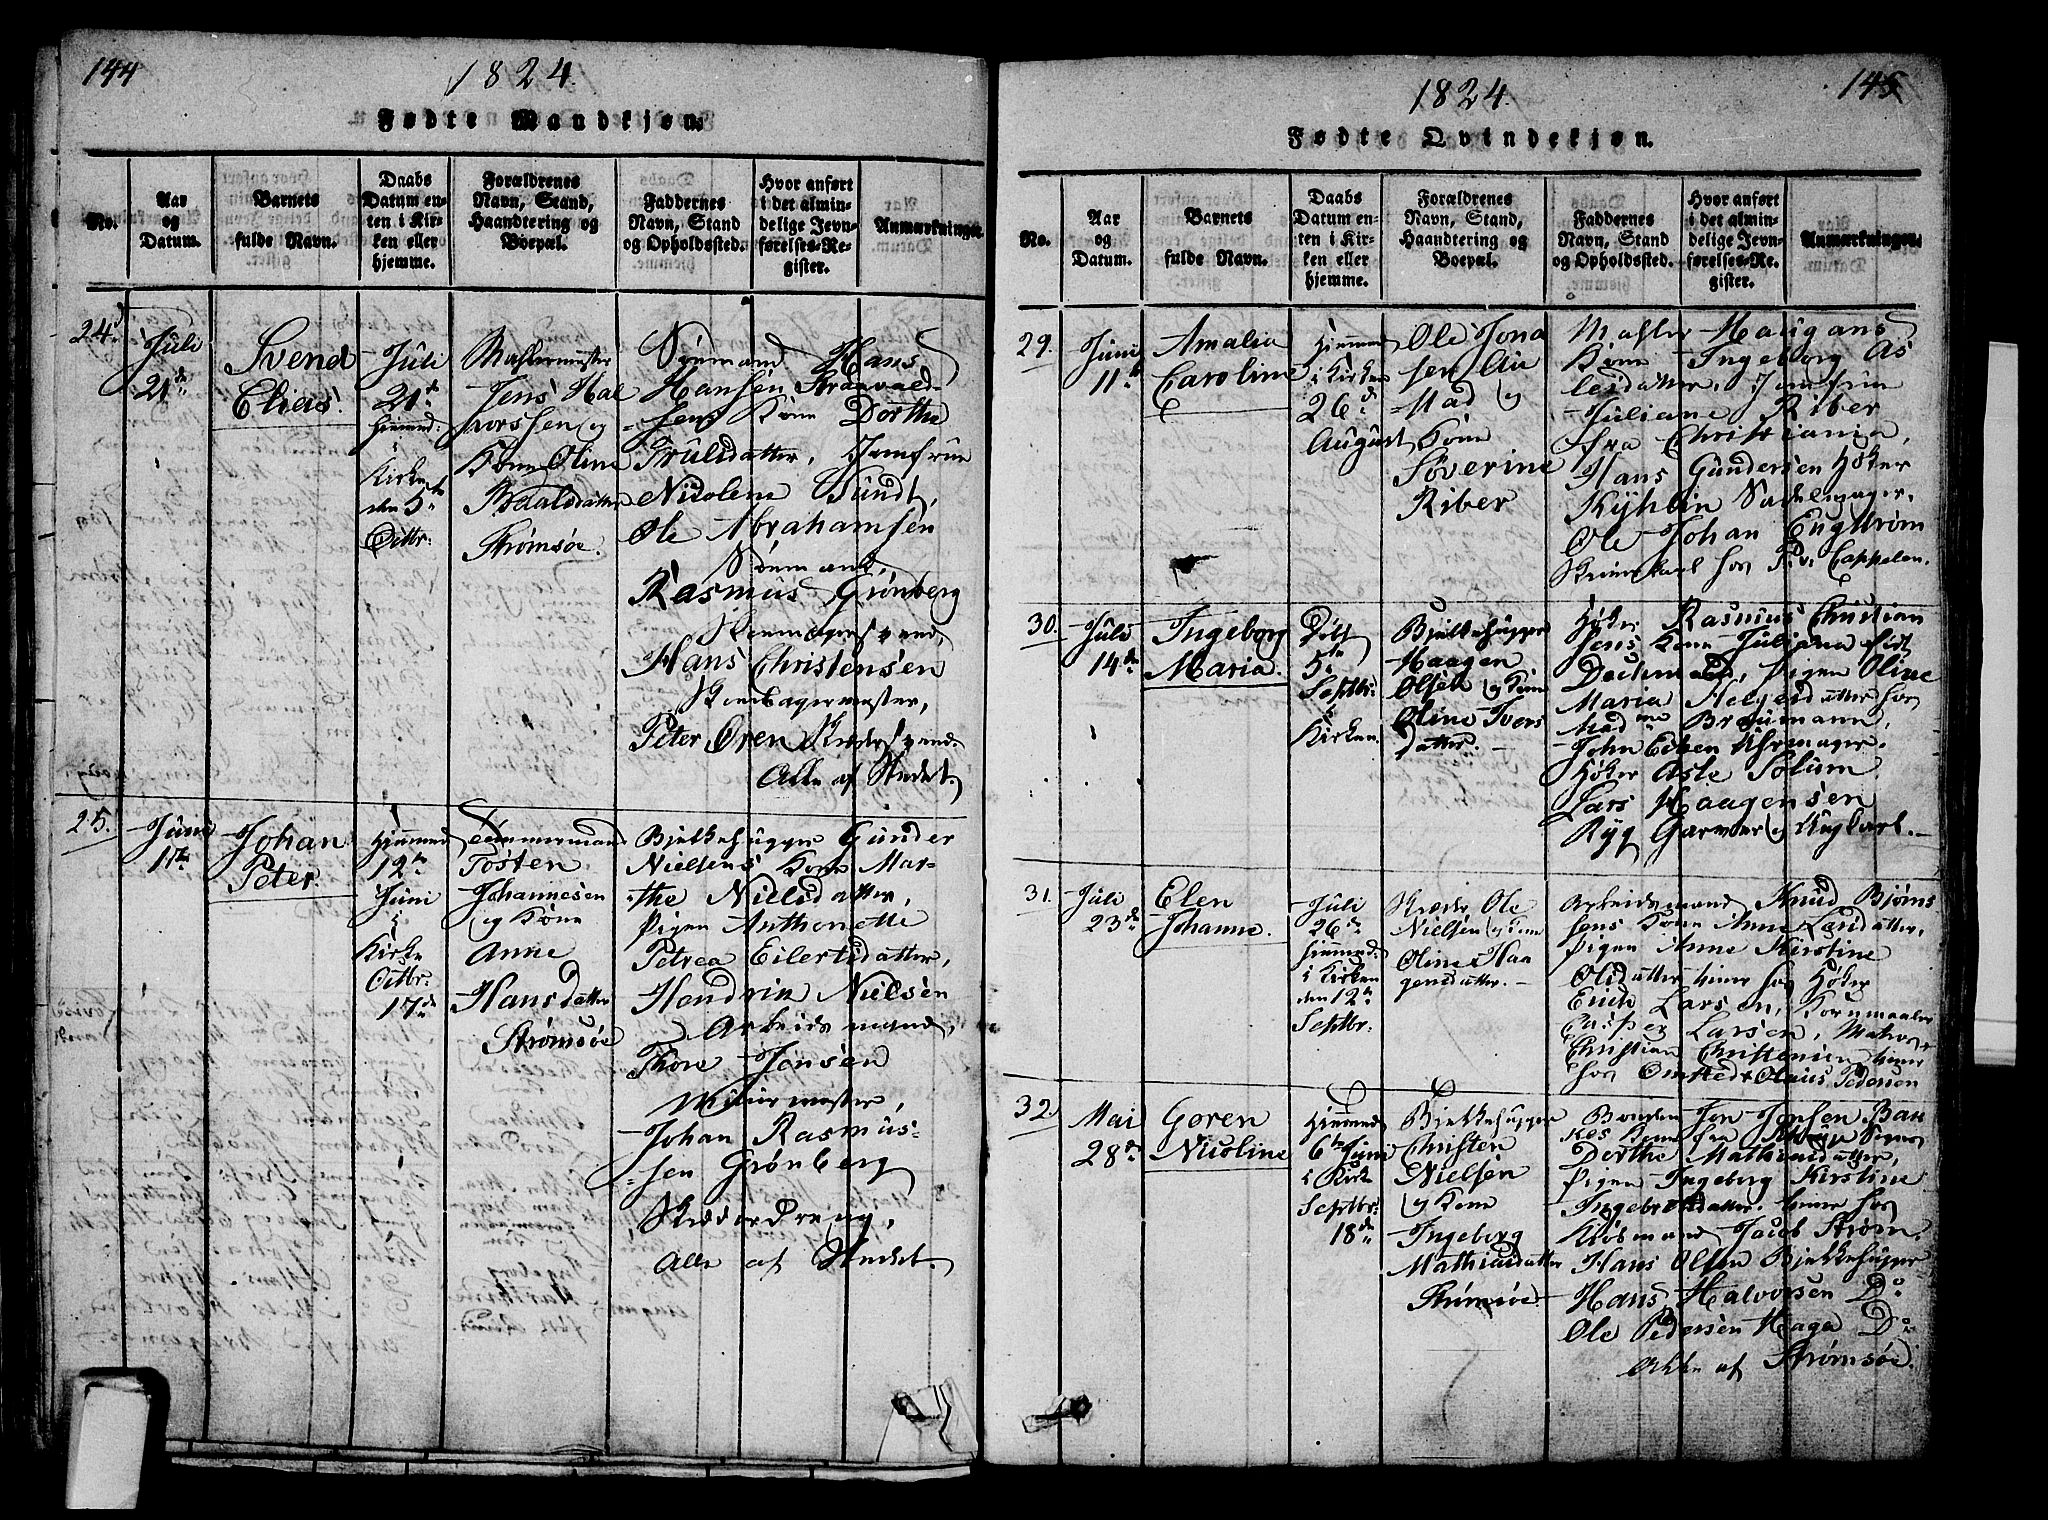 144
1824.
Fødte Mandkjøn.
No.
Aar
og
Datum.
Barnets
fulde Navn.
Daabs
Datum en-
ten i Kir-
ken eller
hjemme.
Forældrenes
Navn, Stand,
Haandtering og
Boepæl.
Faddernes
Navn, Stand
og Opholdssted.
Hvor anført
i det almin-
delige Jevn-
førelses-Re-
gister.
Anmærkninger.
24
Juli
21de
Svend
Elias.
Juli
21de
hiemmed:
i
Kirken
den 5te
Octbr:
Jens Hal
vorssen og
Kone Oline
Paalsdatter
Strømsøe.
Sømand Hans
Hansen
sens Kone Dorthe
Trulsdatter, Jomfrue
Nicoline Sundt,
Ole Abrahamsen
Sømand,
Rasmus Grønberg
Hans Christensen
Peter Øren
Alle af Stedet.
25.
Juni
11te
Johan
Peter.
Hjemmed
12te
Juni
i
Kirke
Octbr:
17de
Tømmermand
Tosten
Johannesen
og Kone
Anne
Hansdatter
Strømsøe
Bjelkehugger Gunder
Nielsens Kone Mar-
the Nielsdatter,
Pigen Anthonette
Petrea Eilertsdatter,
Hendrik Nielsen
Arbeidsmand,
Thore Jonsen
Muurmester,
Johan Rasmus-
sen Grønberg
Skræderdreng,
Alle af Stedet.
145
1824.
Fødte Qvindekjøn.
No.
Aar
og
Datum.
Barnets
fulde Navn.
Daabs
Datum en-
ten i Kir-
ken eller
hjemme.
Forældrenes
Navn, Stand,
Haandtering og
Boepæl.
Faddernes
Navn, Stand
og Opholdssted.
Hvor anført
i det almin-
delige Jevn-
førelses-Re-
gister.
Anmærkninger.
29.
Juni
11te
Amalia
Caroline
Hiemmed
i Kirken
26de
August
Ole Jona
sen
og
Kone
Severine
Riber
Kone Ingeborg As
lesdatter, Jomfrue
Juliane Riber
fra Christiania,
Hans Gundersen Høker
Sadelmager,
Ole Johan Engstrøm
hos P. v. Cappelen.
30.
Juli
14de
Ingeborg
Maria.
Døbt
5te
Septbr:
i
Kirken.
Bjelkehugger
Haagen
Olsen og Kone
Oline Ivers
datter.
Høker Rasmus Christian
Jens Kone Juliana født
Pigen Oline
Maria Helgesdatter hos
Madme
John Uhrmager.
Høker Asle Solum
Lars Haagensen
Ryg Garver og Ungkarl.
31.
Juli
23de
Elen
Johanne.
Juli
26de
hiemmed:
i Kirken
den 12te
Septbr:
Skræder Ole
Nielsen og Kone
Oline Haa
gensdatter.
Arbeidsmand Knud Bjørns
sens Kone Anne Larsdatter,
Pigen Anne Kirstine
Olsdatter tiener hos Høker
Erich Larsen, Kornmaaler
Larsen, Matros
Christian Christensen tiener
hos Omsted & Olaus Pedersen
32.
Mai
28de
Goren
Nicoline
Hjemmed
6te Juni
i Kirke
Septbr:
18de
Bjelkehugger
Christen
Nielsen
og Kone
Ingeborg
Mathiasdatter
Strømsøe.
Bonden Jon Jonsen Bak
kes Kone fra
Dorthe Mathiasdatter,
Pigen Ingeborg Kirstine
Ingebretsdatter, tiener hos
Kiøbmand Jacob Strøm,
Hans Olsen Bjelkehugger
Hans Halvorsen Do
Ole Pedersen Haga Do
Alle af Strømsøe.